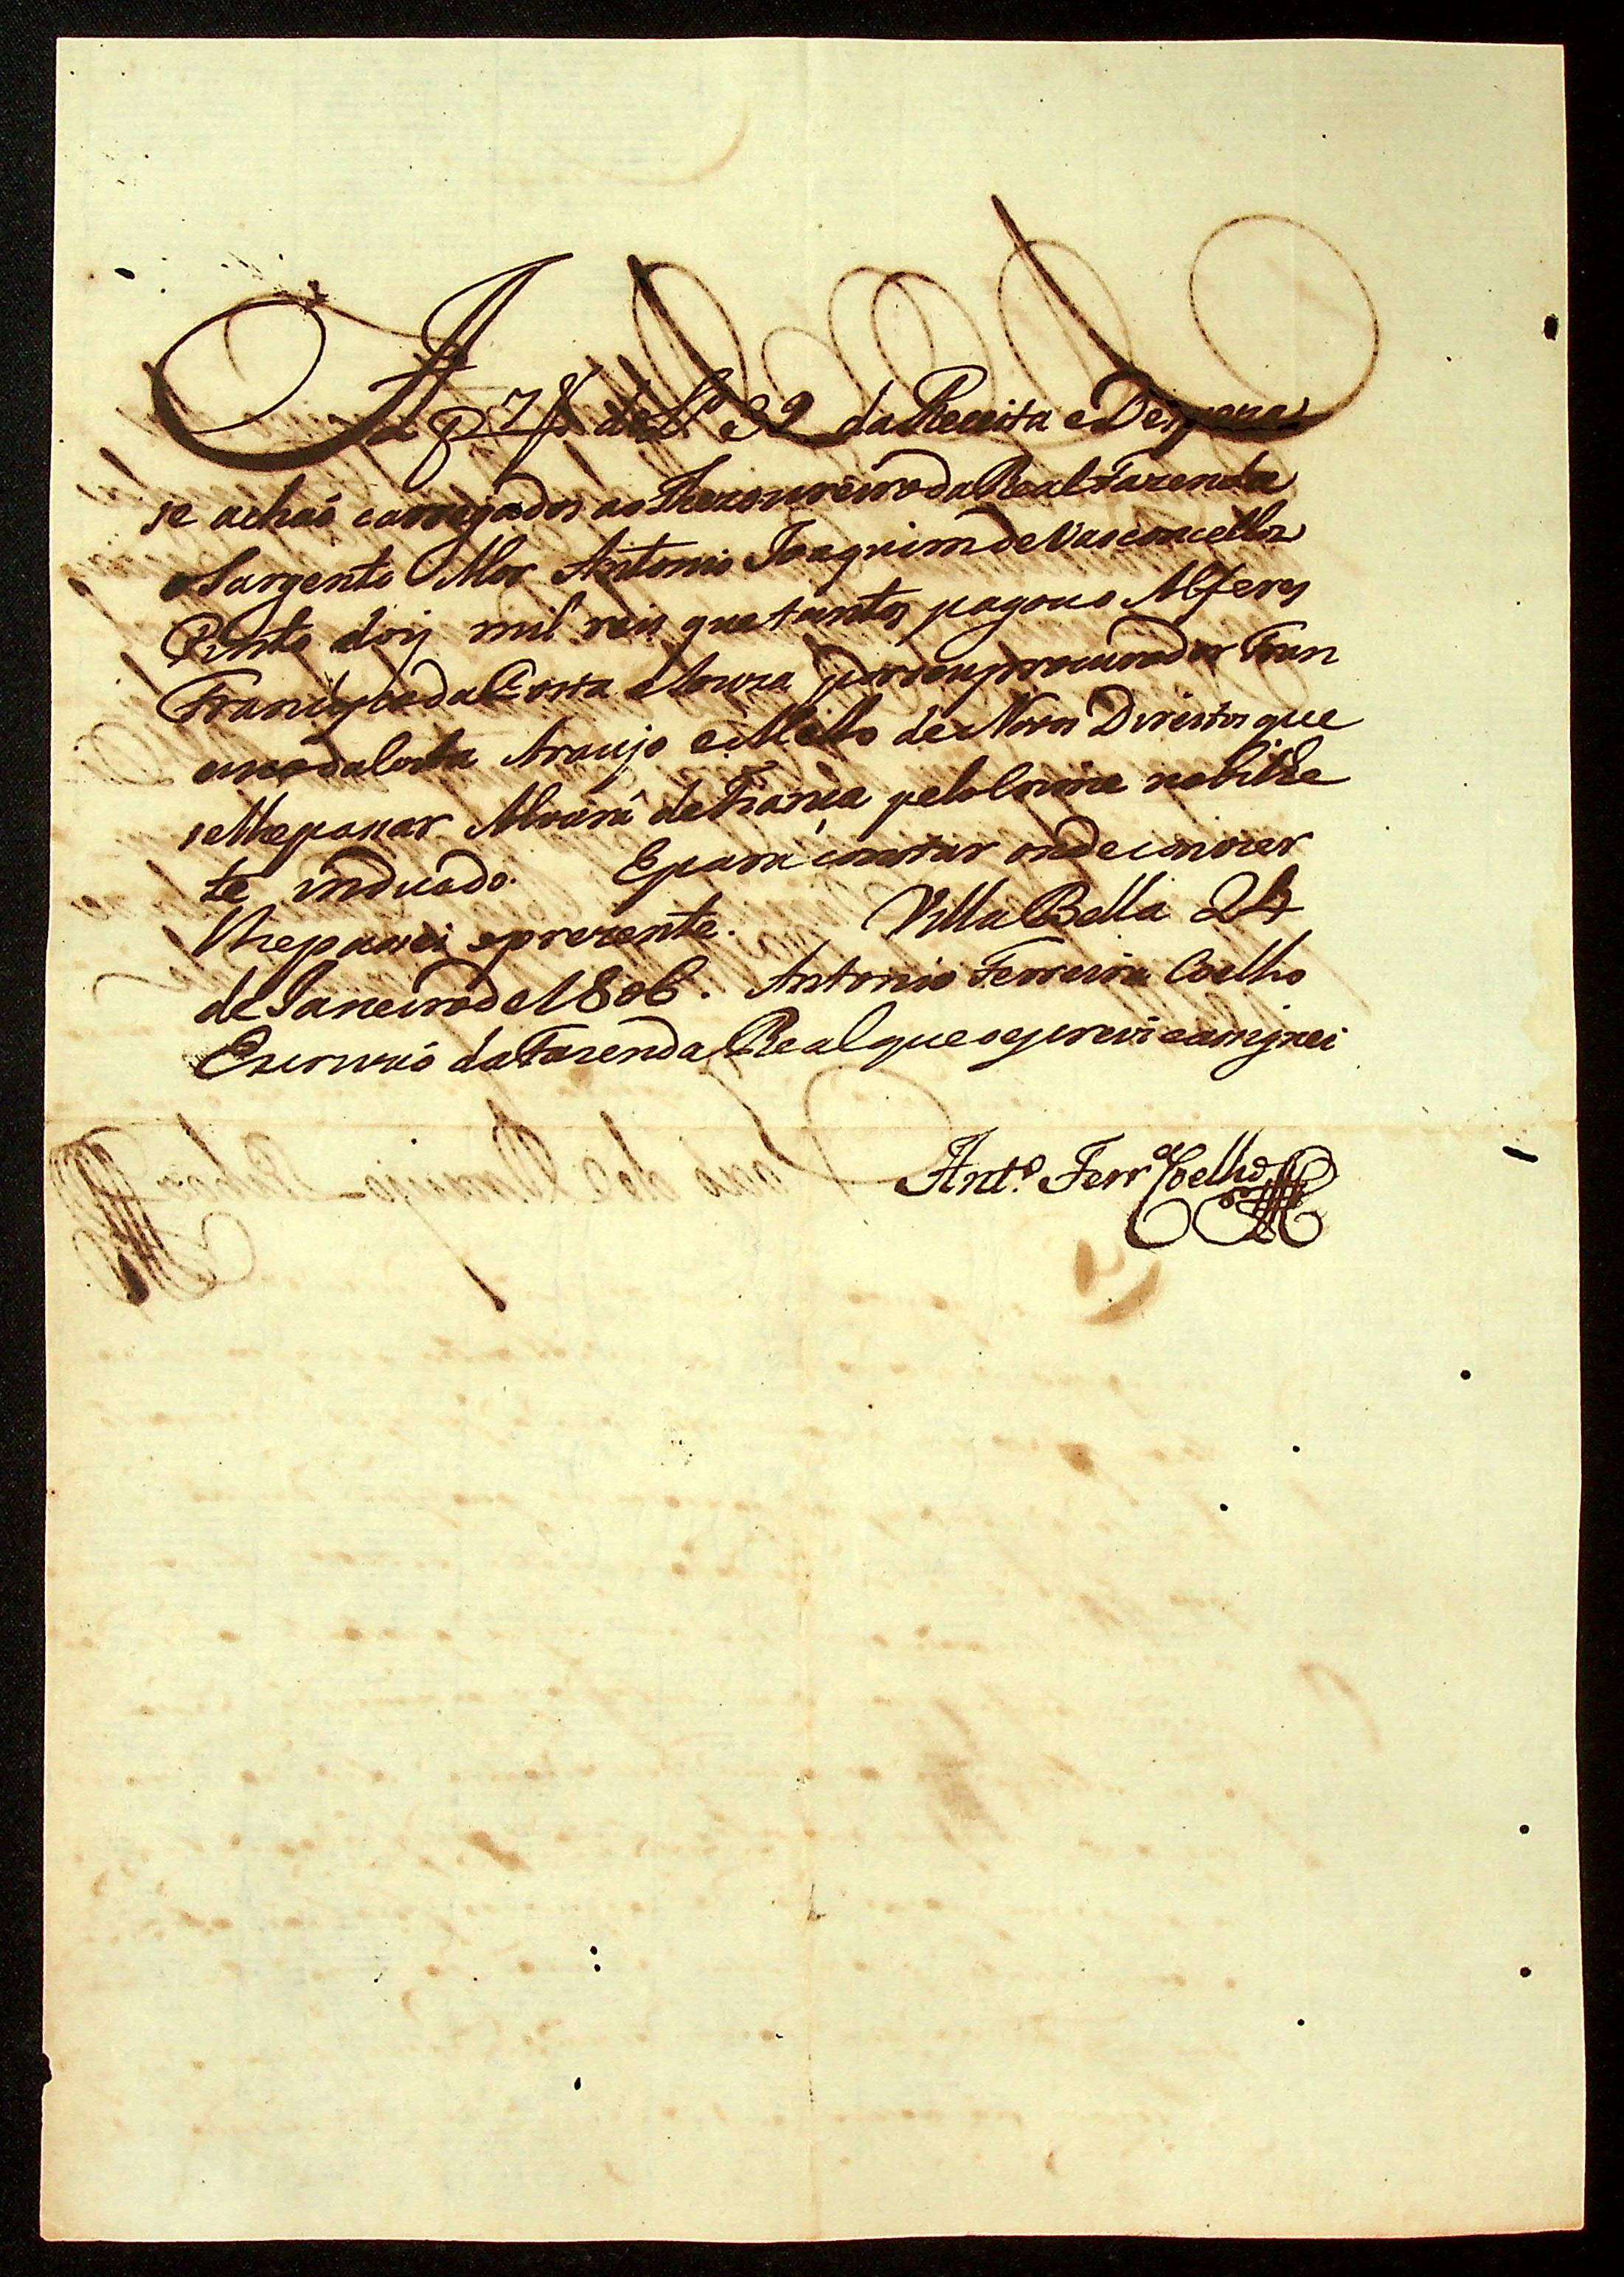 A f 78 do L.º 39 da Receita e Despeza
se achaõ carregados ao Thezoureiro da Real Fazenda
o Sargento Mor Antonio Joaquim de Vasconcellos
Pinto dois mil reis que tantos pagou o Alferes
Francisco da Costa e Souza por seu procurador Fran
cisco da Costa Araujo e Mello de Novos Direitos que
se lhe passar Alvará de Fiança pelo Crime
te indicado. E para constar onde convier
lhe passei o prezente. Villa Bella 24
de Janeiro de 1806. Antonio Ferreira Coelho
Escrivaõ da Fazenda Real que o escrevi e assignei
Ant.º Ferr.ª Coelho